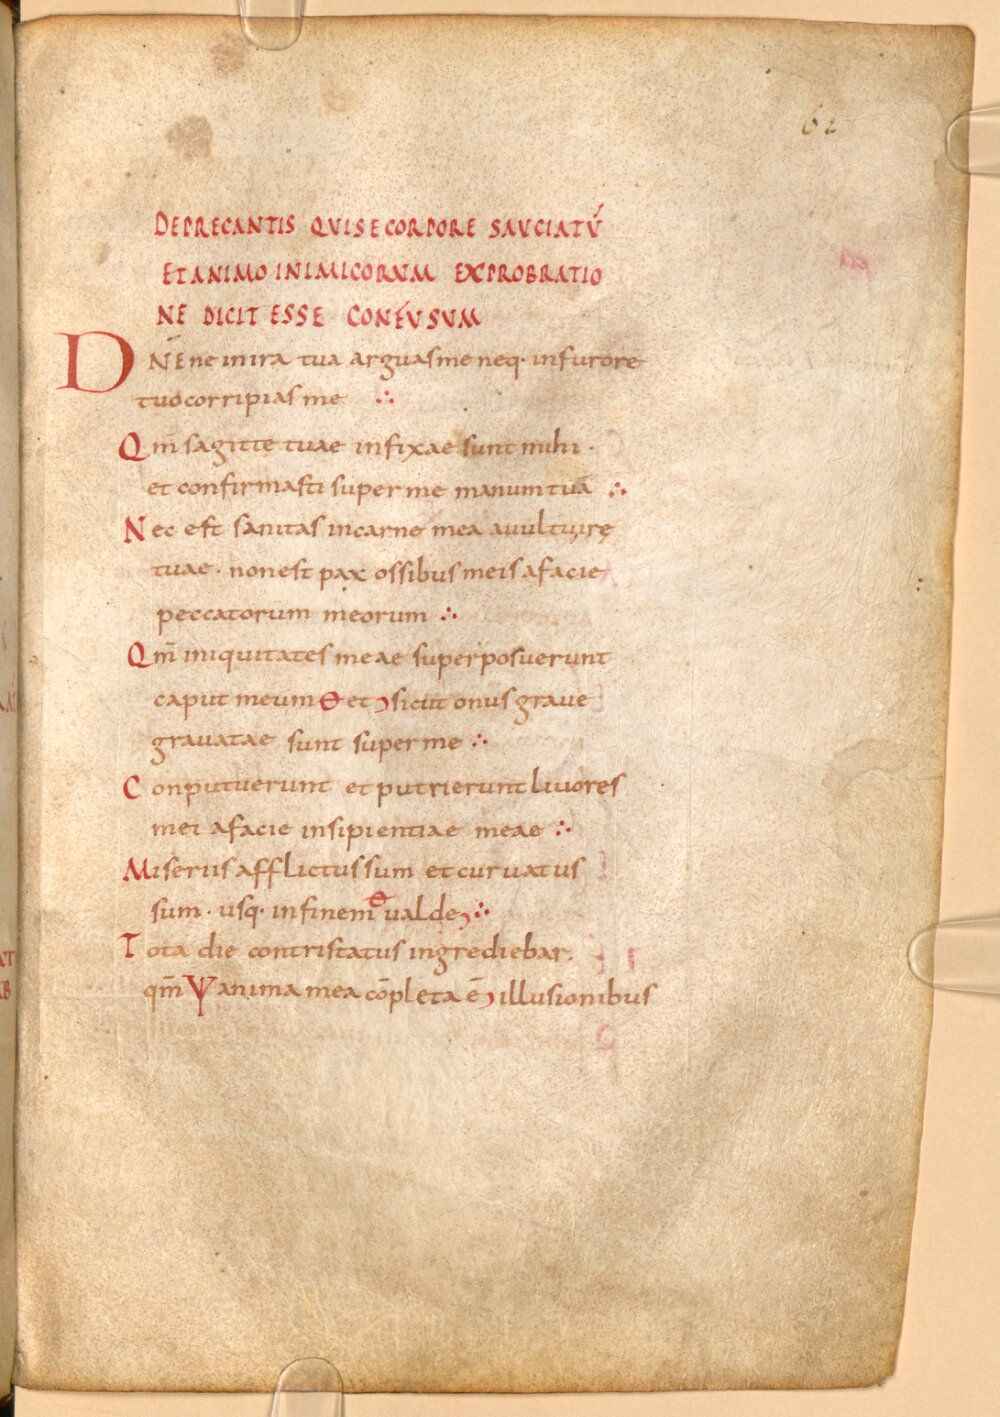 62
DEPRECANTIS QUI SE CORPORE SAUCIATŪ
ET ANIMO INIMICORUM EXPROBRATIO
NE DICIT ESSE CONFUSUM
DN̄E ne in ira tua arguas me neq· in furore
tuo corripias me ∴
Qm̄ sagitte tuae infixae sunt mihi ·
et confirmasti super me manum tuā ∴
Nec est sanitas in carne mea a uultu irę
tuae · non est pax ossibus meis a facie
peccatorum meorum ∴
Qm̄ iniquitates meae superposuerunt
caput meum et sicut onus graue
grauatae sunt super me ∴
Conputuerunt et putrierunt liuores
mei a facie insipientiae meae ∴
Miseriis afflictus sum et curuatus
sum · usq· in finem ualde ∴
Tota die contristatus ingrediebar.
qm̄ anima mea cōpleta ē illusionibus